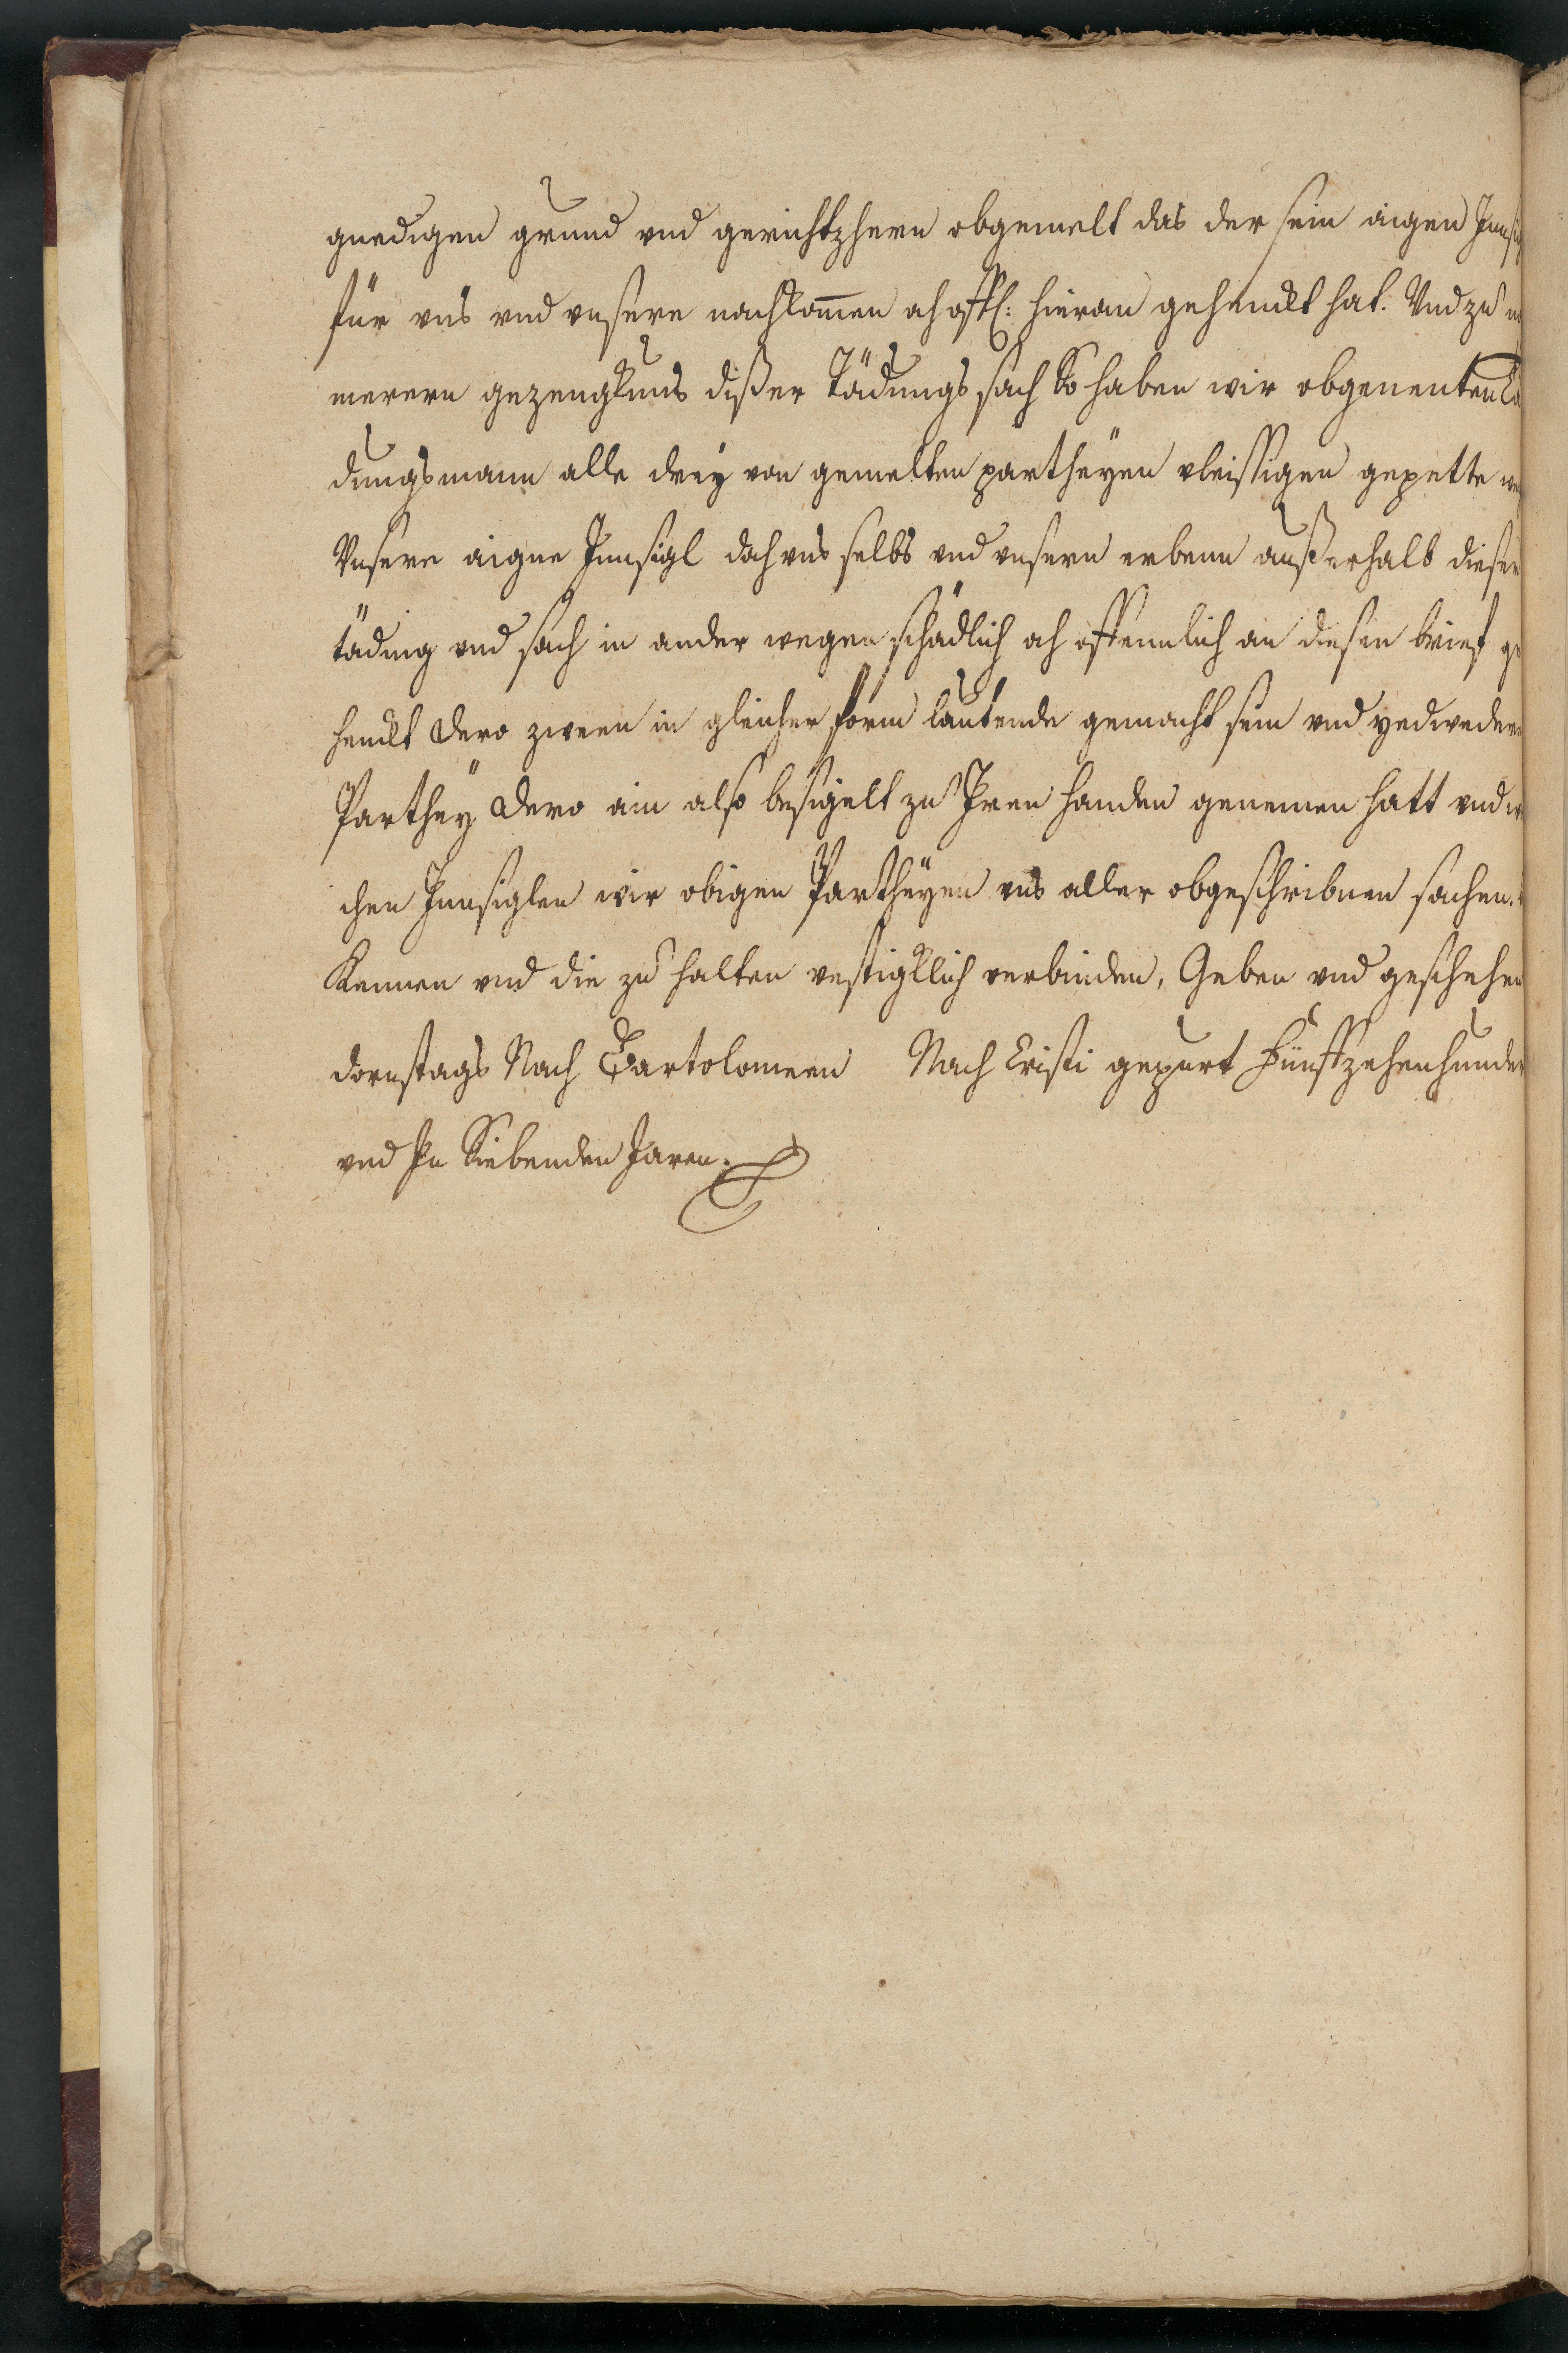 gnedigen grund vnd gerichtzhern obgemelt das der sein aigen Innsig
für vns vnd vnsere nachkomen ach offl: hieran gehenckt hat. Vnd zu
merern gezeugknus dißer Tädungs sach So haben wir obgenenten Tä
dungsmann alle drey von gemelten partheyen vleissigen gepette we
Vnsere aigne Innsigl doch vns selbs vnd vnsern erbenn außerhalb dieser
täding vnd sach in ander wegen schädlich ach offennlich an diesen brief ge
henckt Dero zween in gleicher form lautende gemacht sein vnd yedwedere
Parthey Dero ain also besigelt zu Iren handen genemen hatt vnd
chen Innsiglen wir obigen Partheyen vns aller obgeschribnen sachen.
Kennen vnd die zu halten vestigklich verbinden, Geben vnd geschehen
dornstags Nach Bartolomeen Nach Cristi gepurt Fünffzehenhunder
vnd In Siebenden Jaren.